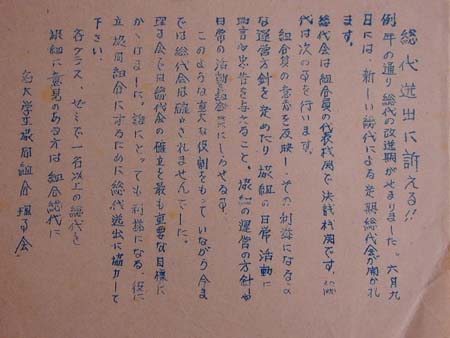 総代選出に訴える!!
例年の通り総代の改選期がせまりました。六月九
日には、新しい総代による定期総代会が開かれ
ます。
総代会は組合員の代表機関で決議機関です。総
代は次の事を行います。
組合員の意志を反映し、その利益になる
な運営方針を定めたり、協組の日常活動に
助言や忠告を与えること。協組の運営の方針や
日常の活動を組合員にしらせる事。
このような重大な役割をもっていながら今ま
では総代会は確立されませんでした。
理事会では総代会の確立を最も重要な目標に
かゝげました。誰にとっても利益になる、役に
立つ協同組合にするために総代選出に協力して
下さい。
各クラス、ゼミで一名以上の総代を
協組に意見のある方は組合総代に
名大学生協同組合 理事会